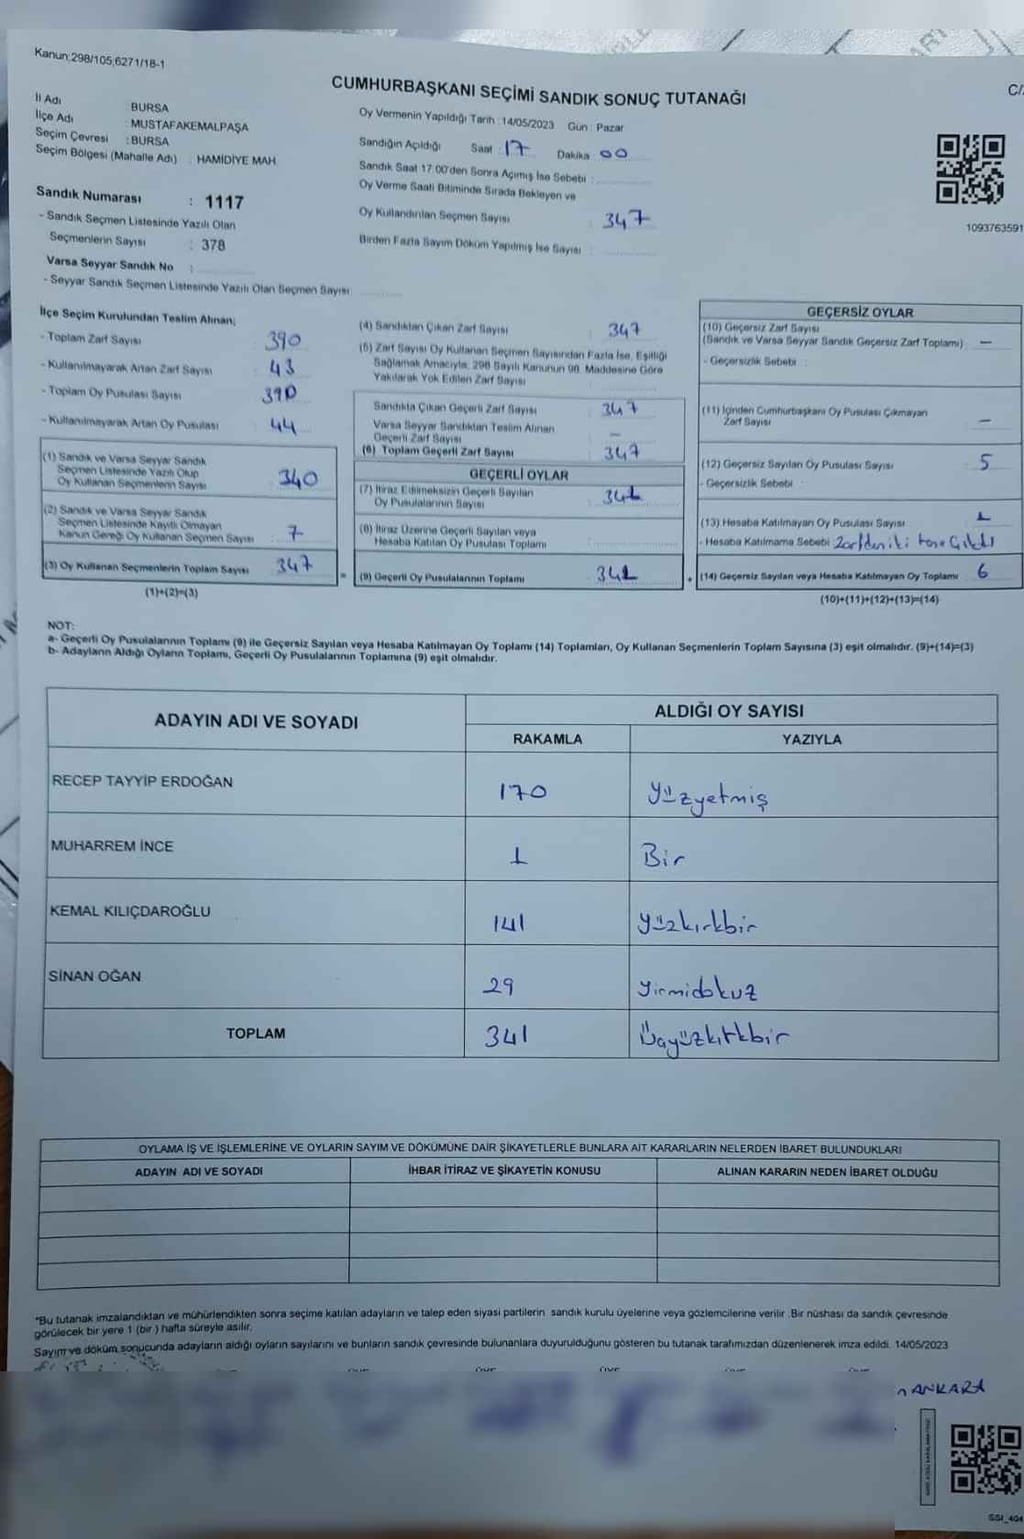 Kanun;298/105;6271/18-1
CUMHURBAŞKANI SEÇİMİ SANDIK SONUÇ TUTANAĞI
C/
İl Adı BURSA
İlçe Adı : MUSTAFAKEMALPAŞA
Seçim Çevresi : BURSA
Seçim Bölgesi (Mahalle Adı) : HAMİDİYE MAH.
Sandık Numarası : 1117
- Sandık Seçmen Listesinde Yazılı Olan
Seçmenlerin Sayısı : 378
Varsa Seyyar Sandık No :
- Seyyar Sandık Seçmen Listesinde Yazılı Olan Seçmen Sayısı
Oy Vermenin Yapıldığı Tarih :14/05/2023 Gün : Pazar
Sandığın Açıldığı Saat : 17 Dakika 00
Sandık Saat 17:00'den Sonra Açımış İse Sebebi :
Oy Verme Saati Bitiminde Sırada Bekleyen ve
Oy Kullandırılan Seçmen Sayısı : 347
Birden Fazla Sayım Döküm Yapılmış İse Sayısı :
1093763591
İlçe Seçim Kurulundan Teslim Alınan;
- Toplam Zarf Sayısı : 390
- Kullanılmayarak Artan Zarf Sayısı : 43
- Toplam Oy Pusulası Sayısı : 390
- Kullanılmayarak Artan Oy Pusulası : 44
(1) Sandık ve Varsa Seyyar Sandık
Seçmen Listesinde Yazılı Olup
Oy Kullanan Seçmenlerin Sayısı : 340
(2) Sandık ve Varsa Seyyar Sandık
Seçmen Listesinde Kayıtlı Olmayan
Kanun Gereği Oy Kullanan Seçmen Sayısı : 7
(3) Oy Kullanan Seçmenlerin Toplam Sayısı : 347
(1)+(2)=(3)
(4) Sandıktan Çıkan Zarf Sayısı : 347
(5) Zarf Sayısı Oy Kullanan Seçmen Sayısından Fazla İse, Eşitliği
Sağlamak Amacıyla, 298 Sayılı Kanunun 98. Maddesine Göre
Yakılarak Yok Edilen Zarf Sayısı :
Sandıkta Çıkan Geçerli Zarf Sayısı : 347
Varsa Seyyar Sandıktan Teslim Alınan
Geçerli Zarf Sayısı : —
(6) Toplam Geçerli Zarf Sayısı : 347
GEÇERLİ OYLAR
(7) İtiraz Edilmeksizin Geçerli Sayılan
Oy Pusulalarının Sayısı : 341
(8) İtiraz Üzerine Geçerli Sayılan veya
Hesaba Katılan Oy Pusulası Toplamı :
= (9) Geçerli Oy Pusulalarının Toplamı : 341
GEÇERSİZ OYLAR
(10) Geçersiz Zarf Sayısı
(Sandık ve Varsa Seyyar Sandık Geçersiz Zarf Toplamı) : —
- Geçersizlik Sebebi :
(11) İçinden Cumhurbaşkanı Oy Pusulası Çıkmayan
Zarf Sayısı —
(12) Geçersiz Sayılan Oy Pusulası Sayısı 5
- Geçersizlik Sebebi :
(13) Hesaba Katılmayan Oy Pusulası Sayısı 1
- Hesaba Katılmama Sebebi : Zarfdan iki tane Çıktı
+ (14) Geçersiz Sayılan veya Hesaba Katılmayan Oy Toplamı 6
(10)+(11)+(12)+(13)=(14)
NOT:
a- Geçerli Oy Pusulalarının Toplamı (9) ile Geçersiz Sayılan veya Hesaba Katılmayan Oy Toplamı (14) Toplamları, Oy Kullanan Seçmenlerin Toplam Sayısına (3) eşit olmalıdır. (9)+(14)=(3)
b- Adayların Aldığı Oyların Toplamı, Geçerli Oy Pusulalarının Toplamına (9) eşit olmalıdır.
ADAYIN ADI VE SOYADI ALDIĞI OY SAYISI
RAKAMLA YAZIYLA
RECEP TAYYİP ERDOĞAN 170 Yüzyetmiş
MUHARREM İNCE 1 Bir
KEMAL KILIÇDAROĞLU 141 Yüzkırkbir
SİNAN OĞAN 29 Yirmidokuz
TOPLAM 341 Üçyüzkırkbir
OYLAMA İŞ VE İŞLEMLERİNE VE OYLARIN SAYIM VE DÖKÜMÜNE DAİR ŞİKAYETLERLE BUNLARA AİT KARARLARIN NELERDEN İBARET BULUNDUKLARI
ADAYIN ADI VE SOYADI İHBAR İTİRAZ VE ŞİKAYETİN KONUSU ALINAN KARARIN NEDEN İBARET OLDUĞU
*Bu tutanak imzalandıktan ve mühürlendikten sonra seçime katılan adayların ve talep eden siyasi partilerin sandık kurulu üyelerine veya gözlemcilerine verilir. Bir nüshası da sandık çevresinde
görülecek bir yere 1 (bir ) hafta süreyle asılır.
Sayım ve döküm sonucunda adayların aldığı oyların sayılarını ve bunların sandık çevresinde bulunanlara duyurulduğunu gösteren bu tutanak tarafımızdan düzenlenerek imza edildi. 14/05/2023
ANKARA
SSİ_404